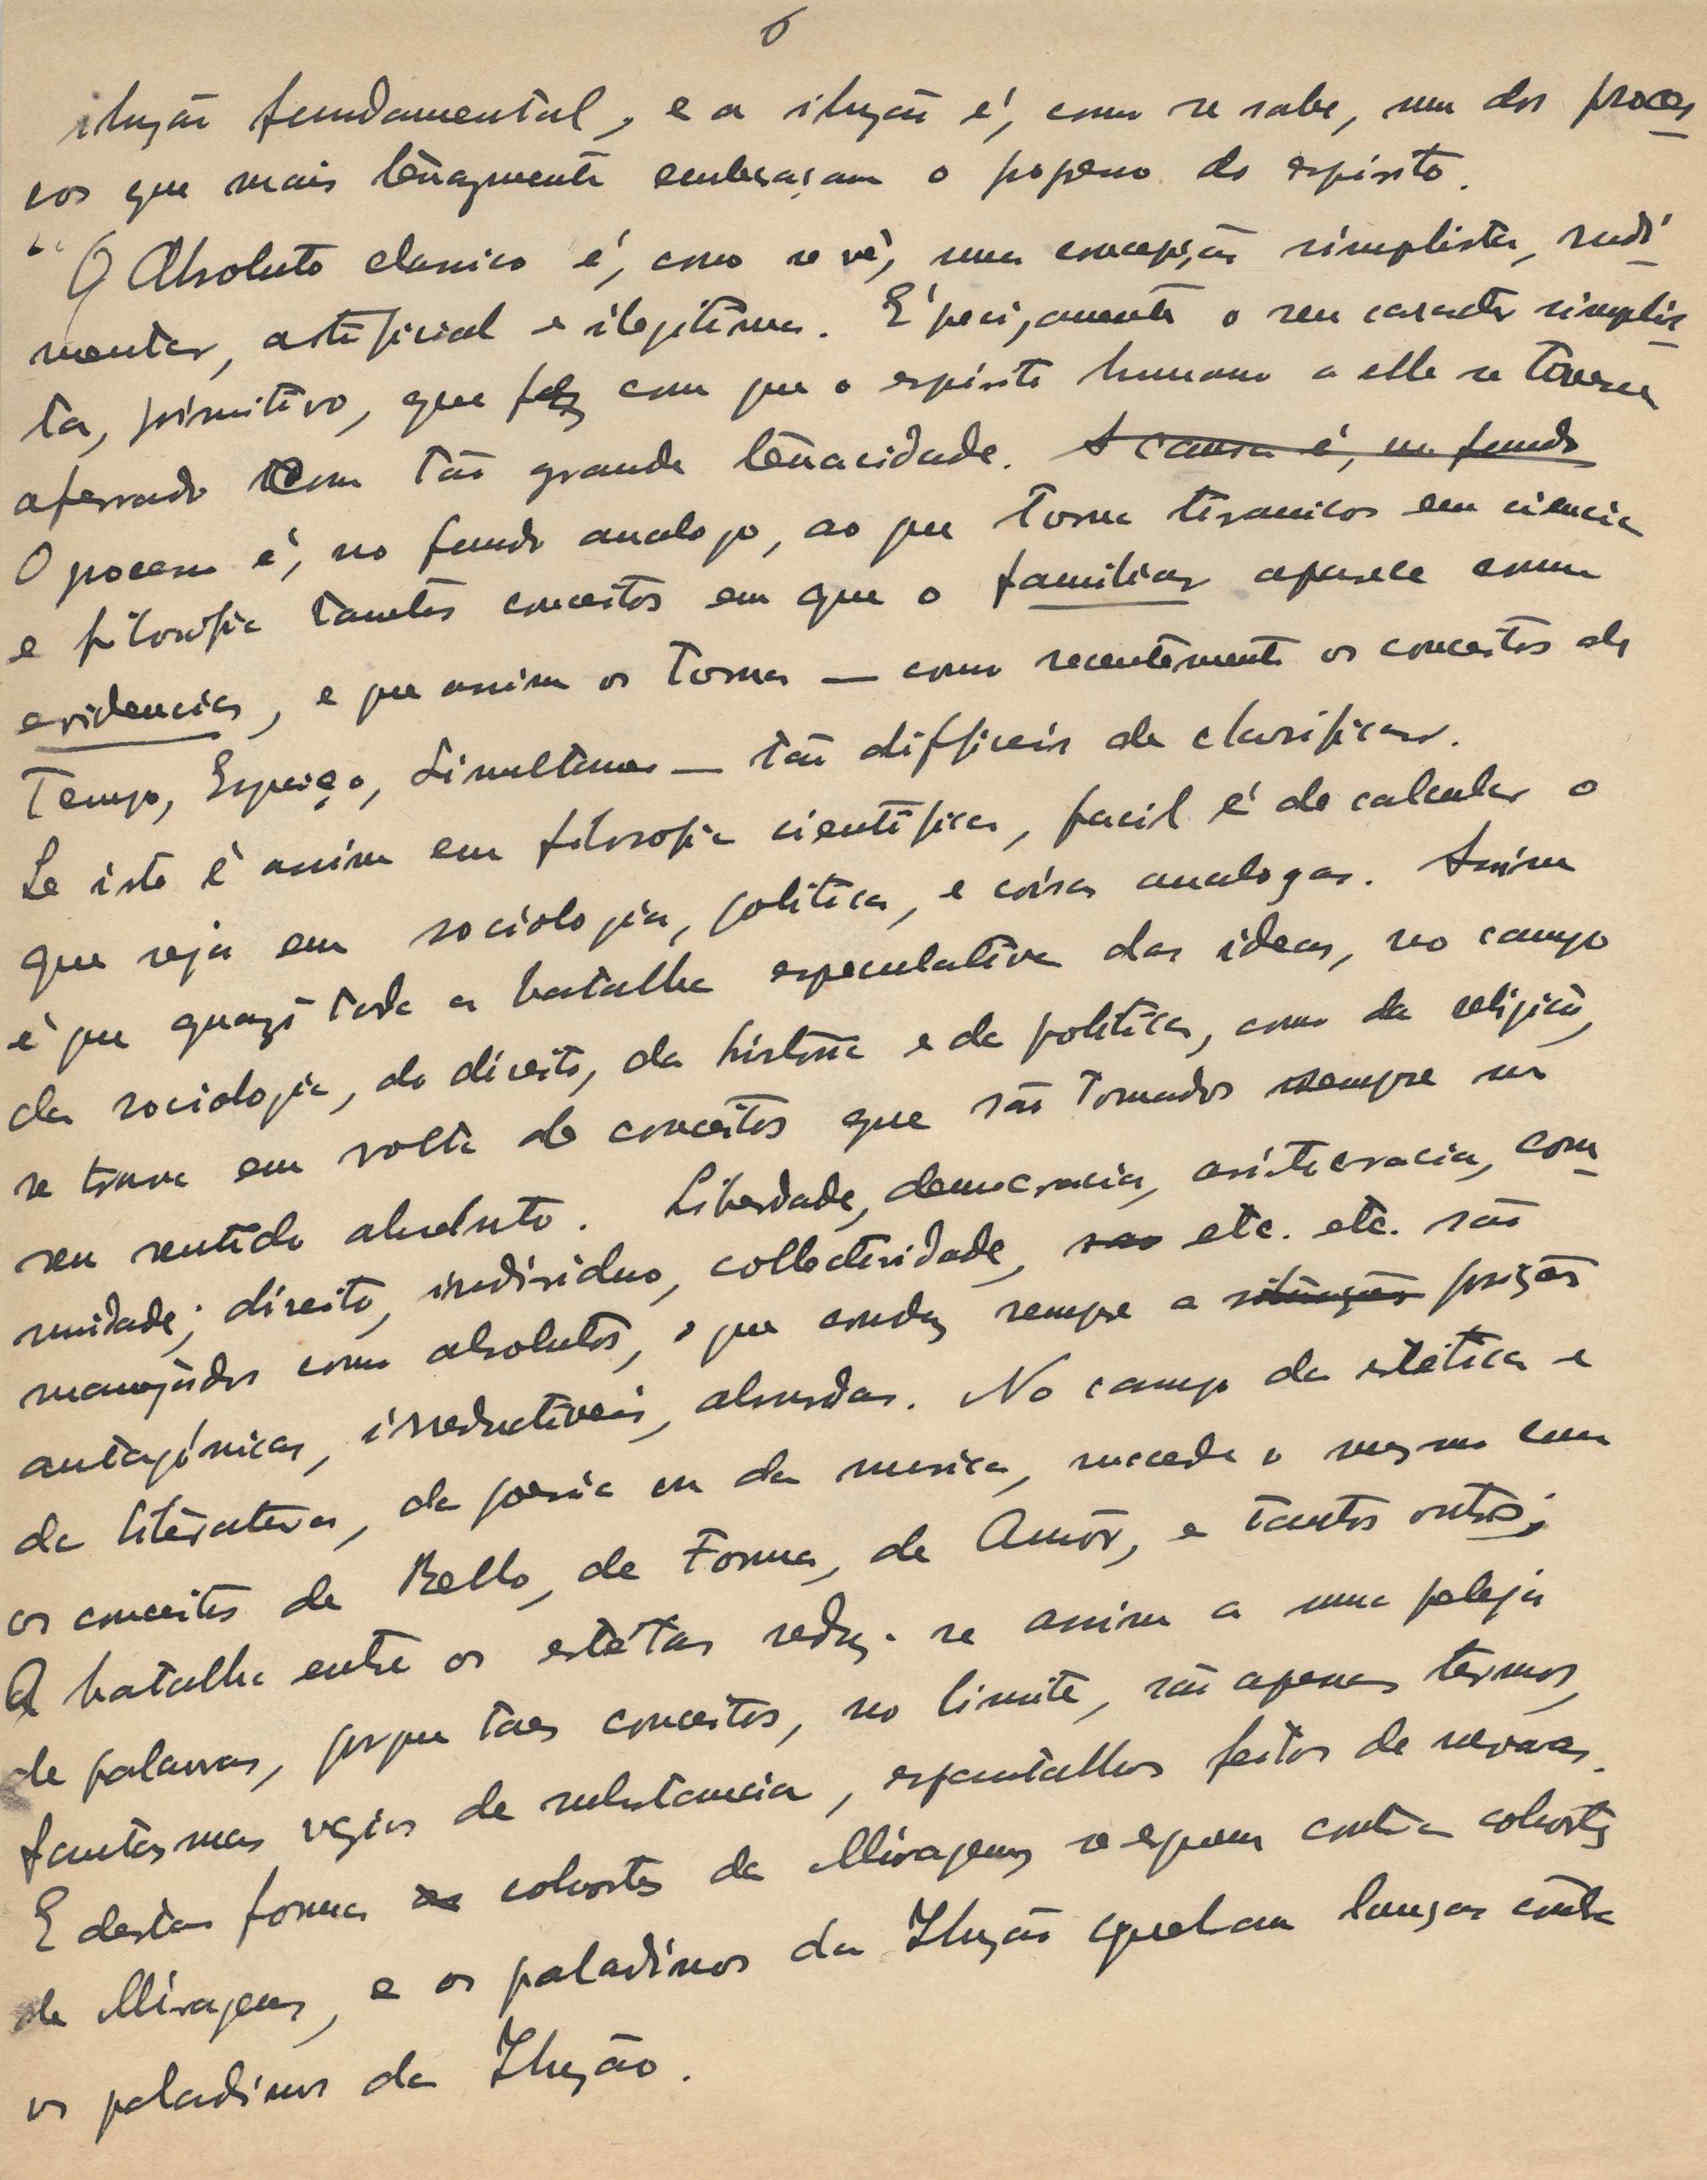 6
iluzão fundamental, e a iluzão é, como se sabe, um dos proces
sos que mais tenazmente embaraçam o progresso do espirito.
"O Absoluto classico é, como se vê, uma concepção simplista, rudi
mentar, artificial e ilegitima. É precizamente o seu caracter simplis
ta, primitivo, que fez com que o espirito humano a elle se tivesse
aferrado com tão grande tenacidade. A causa é, no fundo
O processo é, no fundo analogo, ao que torna tiranicos em ciencia
e filosofia tantos conceitos em que o familiar aparece como
evidencia, e que assim os torna — como recentemente os conceitos de
Tempo, Espaço, Simultaneo — tão difficeis de clarificar.
Se isto é assim em filosofia cientifica, facil é de calcular o
que seja em sociologia, politica, e coisas analogas. Assim
é que quazi toda a batalha especulativa das ideas, no campo
da sociologia, do direito, da historia e da politica, como da religião,
se trava em volta de conceitos que são tomados sempre no
seu sentido absoluto. Liberdade, democracia, aristocracia, com
unidade, direito, individuo, collectividade, são etc. etc. são
manejados como absolutos, o que conduz sempre a situações posições
antagónicas, irreductiveis, absurdas. No campo da estética e
da literatura, da poesia ou da musica, succede o mesmo com
os conceitos de Bello, de Forma, de Amôr, e tantos outros;
A batalha entre os estétas reduz-se assim a uma peleja
de palavras, porque taes conceitos, no limite, são apenas termos,
fantasmas vazios de substancia, espantalhos feitos de nevoas.
E desta forma as cohortes de Miragens se erguem contra cohortes
de Miragens, e os paladinos da Iluzão quebram lanças contra
os paladinos da Iluzão.